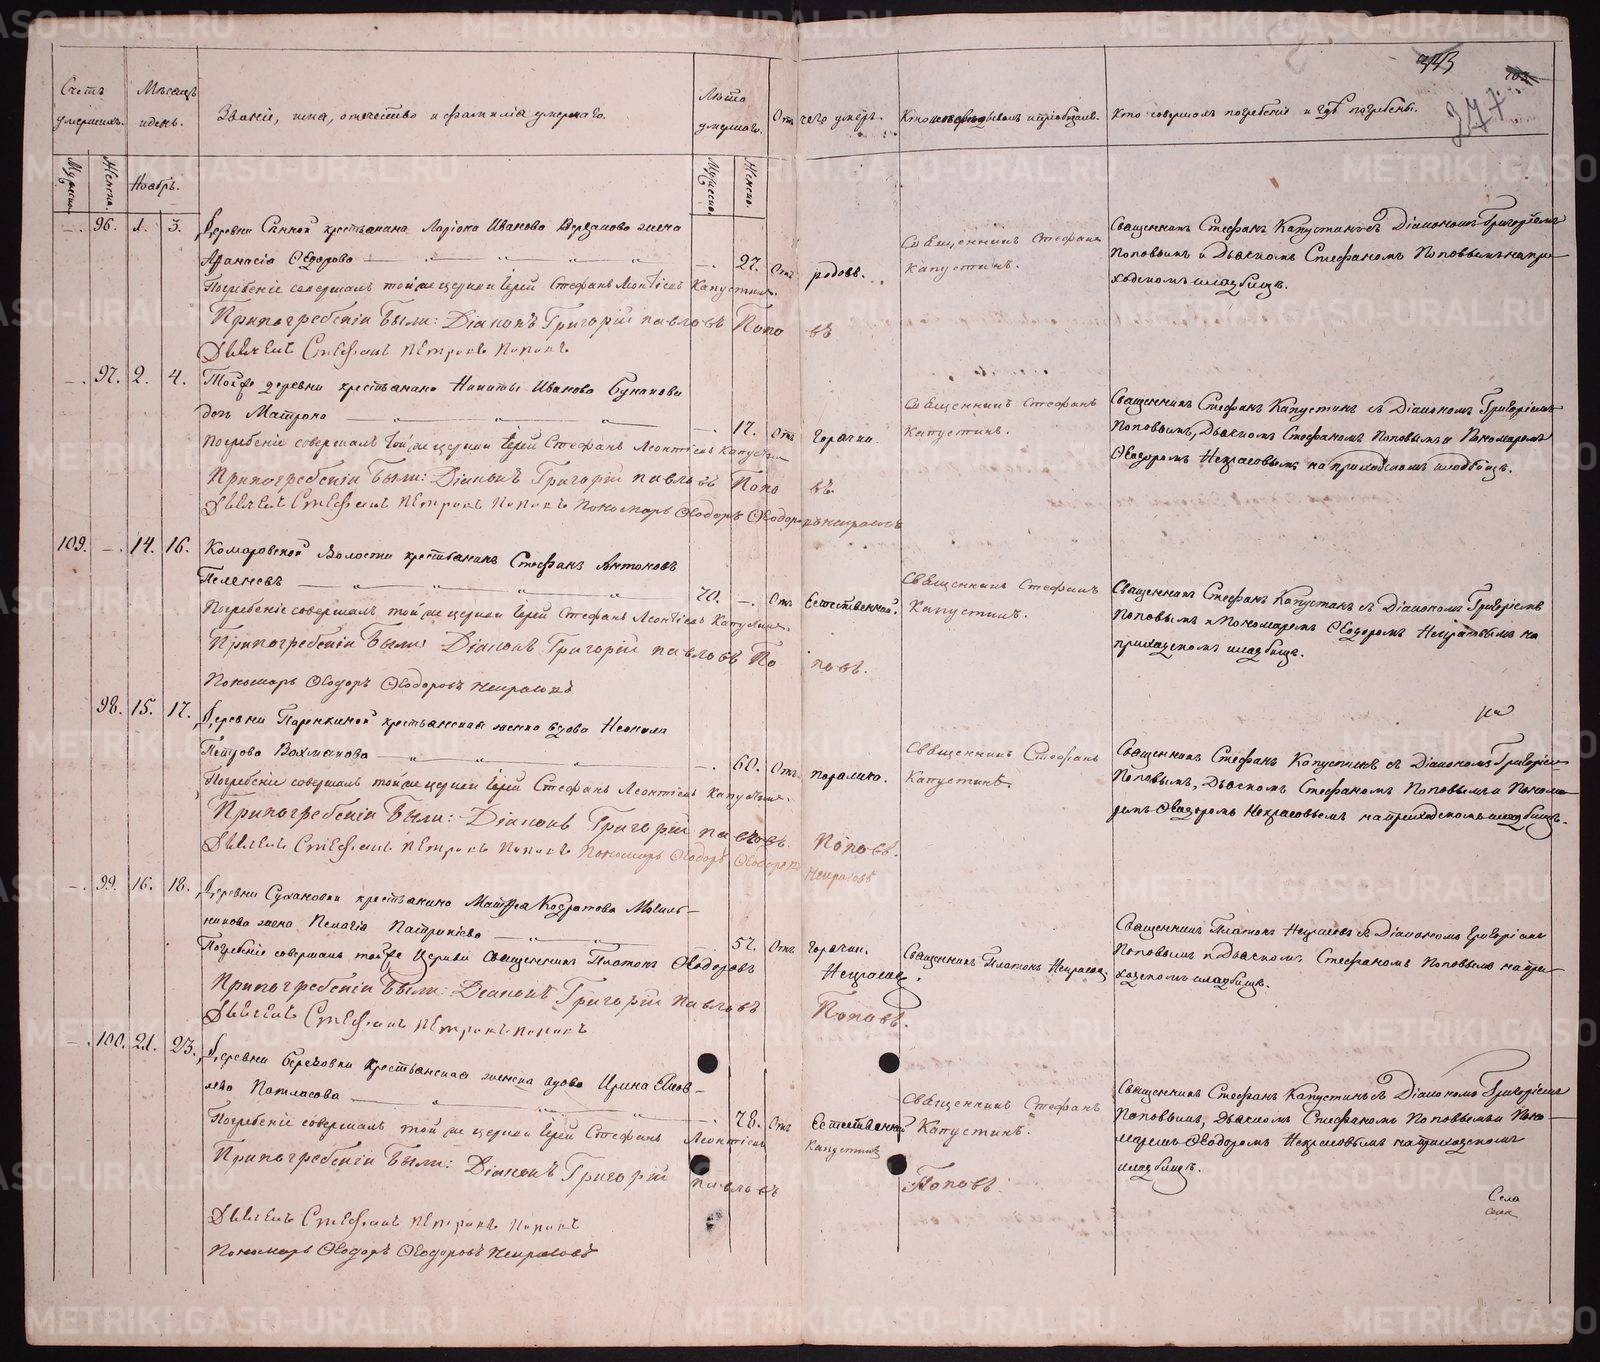 Счетъ умершихъ.
Мѣсяцъ и день.
Званіе, имя, отчество и фамилія умершаго.
Лѣта умершаго.
Отъ чего умеръ.
Кто исповѣдывалъ и пріобщалъ.
Кто совершалъ погребеніе и гдѣ погребены.
Мужеска.
Женска.
Ноябрь.
Мужеска.
Женска.
96. 1. 3. Деревни крестьянина Иванова жена
Афанасія Ѳедорова
27. Отъ родовъ.
Священникъ Стефанъ
Капустинъ.
Священникъ Стефанъ Капустинъ съ Діакономъ Григоріемъ
Поповымъ и Дьячкомъ Стефаномъ Поповымъ на при-
ходскомъ кладбищѣ.
Погребеніе совершалъ той же церкви Іерей Стефанъ Леонтіевъ Капустинъ.
При погребеніи были: Діаконъ Григорій Павловъ Поповъ
Дьячекъ Стефанъ Петровъ Поповъ
97. 2. 4. Той же деревни крестьянина Никиты Иванова
дочь Матрона
17. Отъ горячки.
Священникъ Стефанъ
Капустинъ.
Священникъ Стефанъ Капустинъ съ Діакономъ Григоріемъ
Поповымъ, Дьячкомъ Стефаномъ Поповымъ и Пономаремъ
Ѳеодоромъ Некрасовымъ на приходскомъ кладбищѣ.
Погребеніе совершалъ той же церкви Іерей Стефанъ Леонтіевъ Капустинъ
При погребеніи были: Діаконъ Григорій Павловъ Поповъ.
Дьячекъ Стефанъ Петровъ Поповъ Пономарь Ѳеодоръ Ѳеодоровъ Некрасовъ
109. 14. 16. Комаровской Волости крестьянинъ Стефанъ Антоновъ
Пеленевъ
70. Отъ Естественной.
Священникъ Стефанъ
Капустинъ.
Священникъ Стефанъ Капустинъ съ Діакономъ Григоріемъ
Поповымъ и Пономаремъ Ѳеодоромъ Некрасовымъ на
приходскомъ кладбищѣ.
Погребеніе совершалъ той же церкви Іерей Стефанъ Леонтіевъ Капустинъ.
При погребеніи были: Діаконъ Григорій Павловъ Поповъ.
Пономарь Ѳеодоръ Ѳеодоровъ Некрасовъ
98. 15. 17. Деревни Паренкиной крестьянская женка вдова Неонила
Петрова Вахмянова
60. Отъ паралича.
Священникъ Стефанъ
Капустинъ.
Священникъ Стефанъ Капустинъ съ Діакономъ Григоріемъ
Поповымъ, Дьячкомъ Стефаномъ Поповымъ и Понома-
ремъ Ѳеодоромъ Некрасовымъ на приходскомъ кладбищѣ.
Погребеніе совершалъ той же церкви Іерей Стефанъ Леонтіевъ Капустинъ.
При погребеніи были: Діаконъ Григорій Павловъ Поповъ.
Дьячекъ Стефанъ Петровъ Поповъ Пономарь Ѳеодоръ Ѳеодоровъ Некрасовъ
99. 16. 18. Деревни крестьянина Мосиль-
никова жена Пелагія Патрикіева
57. Отъ горячки.
Священникъ Платонъ Некрасовъ
Священникъ Платонъ Некрасовъ съ Діакономъ Григоріемъ
Поповымъ и Дьячкомъ Стефаномъ Поповымъ на при-
ходскомъ кладбищѣ.
Погребеніе совершалъ той же Церкви Священникъ Платонъ Ѳеодоровъ Некрасовъ.
При погребеніи были: Діаконъ Григорій Павловъ Поповъ.
Дьячекъ Стефанъ Петровъ Поповъ
100. 21. 23. Деревни Березовки Крестьянская женка вдова Ирина Яков-
лева Патласова
78. Отъ Естественной
Священникъ Стефанъ
Капустинъ.
Священникъ Стефанъ Капустинъ съ Діакономъ Григоріемъ
Поповымъ, Дьячкомъ Стефаномъ Поповымъ и Поно-
маремъ Ѳеодоромъ Некрасовымъ на приходскомъ
кладбищѣ.
Погребеніе совершалъ той же церкви Іерей Стефанъ Леонтіевъ Капустинъ
При погребеніи были: Діаконъ Григорій Павловъ Поповъ.
Дьячекъ Стефанъ Петровъ Поповъ
Пономарь Ѳеодоръ Ѳеодоровъ Некрасовъ
Села
METRIKI.GASO-URAL.RU